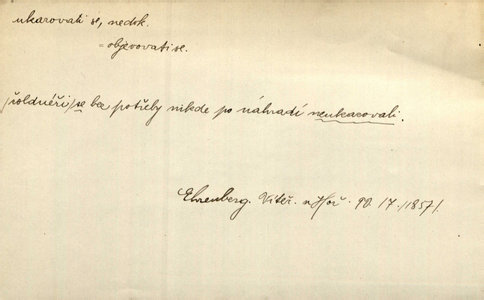 ukazovati se, nedok.
= objevovati se.
/žoldnéři/ se bez potřeby nikde po náhradí neukazovali.
Ehrenberg. Vítěz. n. Hoř. 90. 17. /1857/.